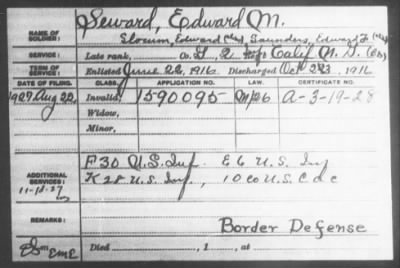 NAME OF SOLDIER: Seward, Edward M.
Slocum, Edward (Alias) Saunders, Edward F.
SERVICE: Late rank, Co. 2 Calif. N. G.
TERM OF SERVICE: Enlisted June 22, 1916 Discharged Oct 1916
DATE OF FILING. CLASS. APPLICATION NO. LAW. CERTIFICATE NO.
1927 Aug 22, Invalid, 1590095 A-3-19-28
Widow,
Minor,
F 30 U.S. Inf. E 6 U.S. Inf
ADDITIONAL SERVICES: K 28 U.S. Inf., 10 Co U.S. C a c
11-18-27
REMARKS: Border Defense
EME Died , 1 , at